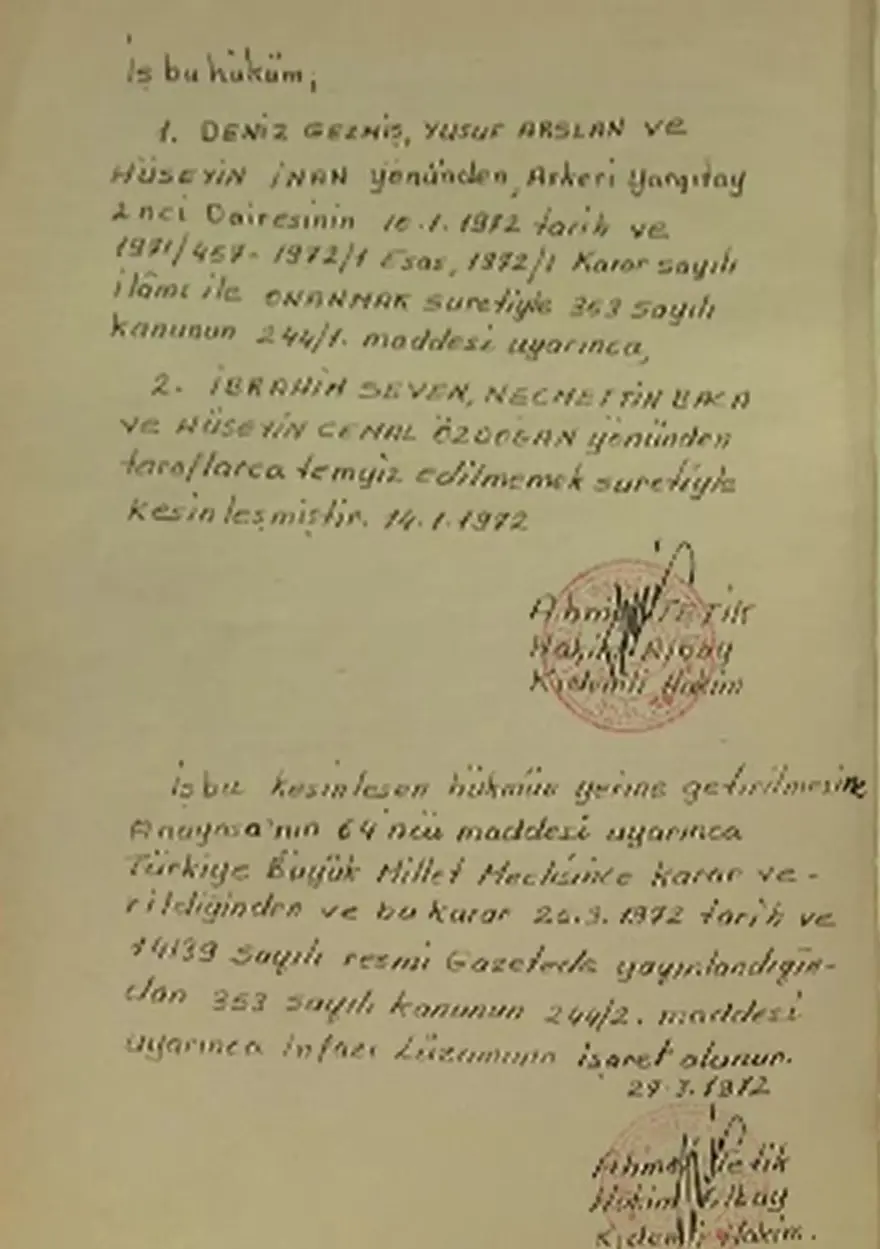 İş bu hüküm,
1. DENİZ GEZMİŞ, YUSUF ARSLAN ve
HÜSEYİN İNAN yönünden, Askeri Yargıtay
2 nci Dairesinin 10.1.1972 tarih ve
1971/457-1972/1 Esas, 1972/1 Karar sayılı
ilâmı ile ONANMAK suretiyle 353 sayılı
kanunun 244/1. maddesi uyarınca,
2. İBRAHİM SEVEN, NECMETTİN BACA
ve HÜSEYİN CEMAL ÖZDOĞAN yönünden
taraflarca temyiz edilmemek suretiyle
Kesinleşmiştir. 14.1.1972
Ahmet TETİK
Hakim Albay
Kıdemli Hakim
İşbu kesinleşen hükmün yerine getirilmesine
Anayasa'nın 64'ncü maddesi uyarınca
Türkiye Büyük Millet Meclisince karar ve-
rildiğinden ve bu karar 3.1972 tarih ve
14139 Sayılı resmi Gazetede yayınlandığın-
dan 353 sayılı kanunun 244/2. maddesi
uyarınca infazı Lüzumuna işaret olunur.
29.3.1972
Ahmet Tetik
Hakim Albay
Kıdemli Hakim.